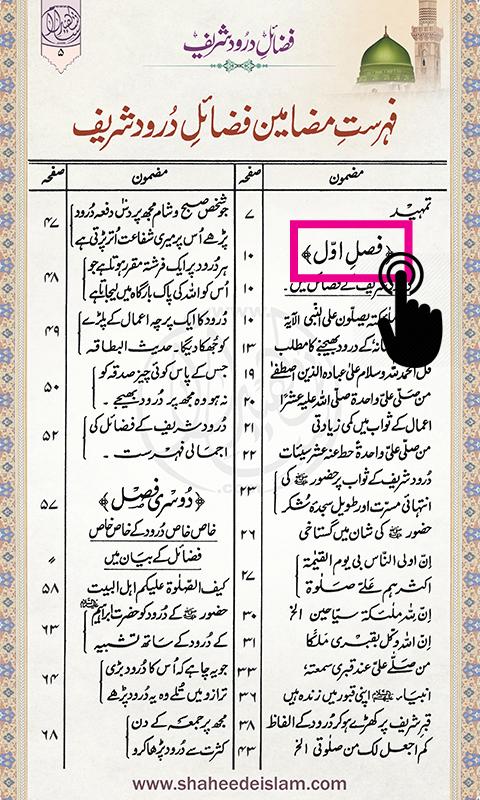 ۵
فضائلِ درود شریف
فہرستِ مضامین فضائلِ دُرود شریف
مضمون
صفحہ
تمہید
۷
﴿فصلِ اوّل﴾
۱۰
شریف کے فضائل میں۔
۱۰
یصلّون علی النبی الآیۃ
۱۰
کے درود بھیجنے کا مطلب
۱۳
قل الحمد للہ وسلام علیٰ عبادہ الذین اصطفےٰ
۱۹
من صلّی علیّ واحدۃ صلّی اللہ علیہ عشرًا
۲۰
اعمال کے ثواب میں کمی زیادتی
۲۱
من صلّی علیّ واحدۃً حط عنہ عشر سیئات
۲۲
دُرود شریف کے ثواب پر حضور ﷺ کی
انتہائی مسرّت اور طویل سجدۂ شکر
۲۳
حضور ﷺ کی شان میں گستاخی
۲۶
اِنّ اولی النّاس بی یوم القیٰمۃ
اکثرہم علیَّ صلوٰۃً
۲۷
اِنّ للہ ملٰٓئکۃ سیّاحین الخ
۳۰
اِنّ اللہ وکّل بقبری ملَکًا
۳۱
من صلّے علیَّ عند قبری سمعتہ
۳۳
انبیاء۔ ﷺ اپنی قبور میں زندہ ہیں
۳۶
قبر شریف پر کھڑے ہو کر دُرود کے الفاظ
۳۸
کم اجعل لک من صلٰوتی الخ
۴۳
مضمون
صفحہ
جو شخص صبح و شام مجھ پر دس دفعہ درود
پڑھے اُس پر میری شفاعت اُتر پڑتی ہے
۴۷
ہر دُرود پر ایک فرشتہ مقرر ہوتا ہے جو
اُس کو اللہ کی پاک بارگاہ میں لیجاتا ہے
۴۸
دُرود کا ایک پرچہ اعمال کے پلڑے
کو جُھکا دیگا۔ حدیث البطاقہ
۴۹
جس کے پاس کوئی چیز صدقہ کو
نہ ہو وہ مجھ پر دُرود بھیجے۔
۵۰
دُرود شریف کے فضائل کی
اجمالی فہرست۔
۵۲
﴿دُوسری فصل﴾
۵۷
خاص خاص درود کے خاص خاص
فضائل کے بیان میں
〃
کیف الصلوٰۃ علیکم اہل البیت
۵۸
حضور ﷺ کے دُرود کو حضرت ابراہیم
کے دُرود کے ساتھ تشبیہ
۶۳
جو یہ چاہے کہ اُس کا دُرود بڑی
ترازو میں تُلے وہ یہ دُرود پڑھے
۶۴
مجھ پر جمعہ کے دن
کثرت سے دُرود پڑھا کرو
۶۸
www.shaheedeislam.com